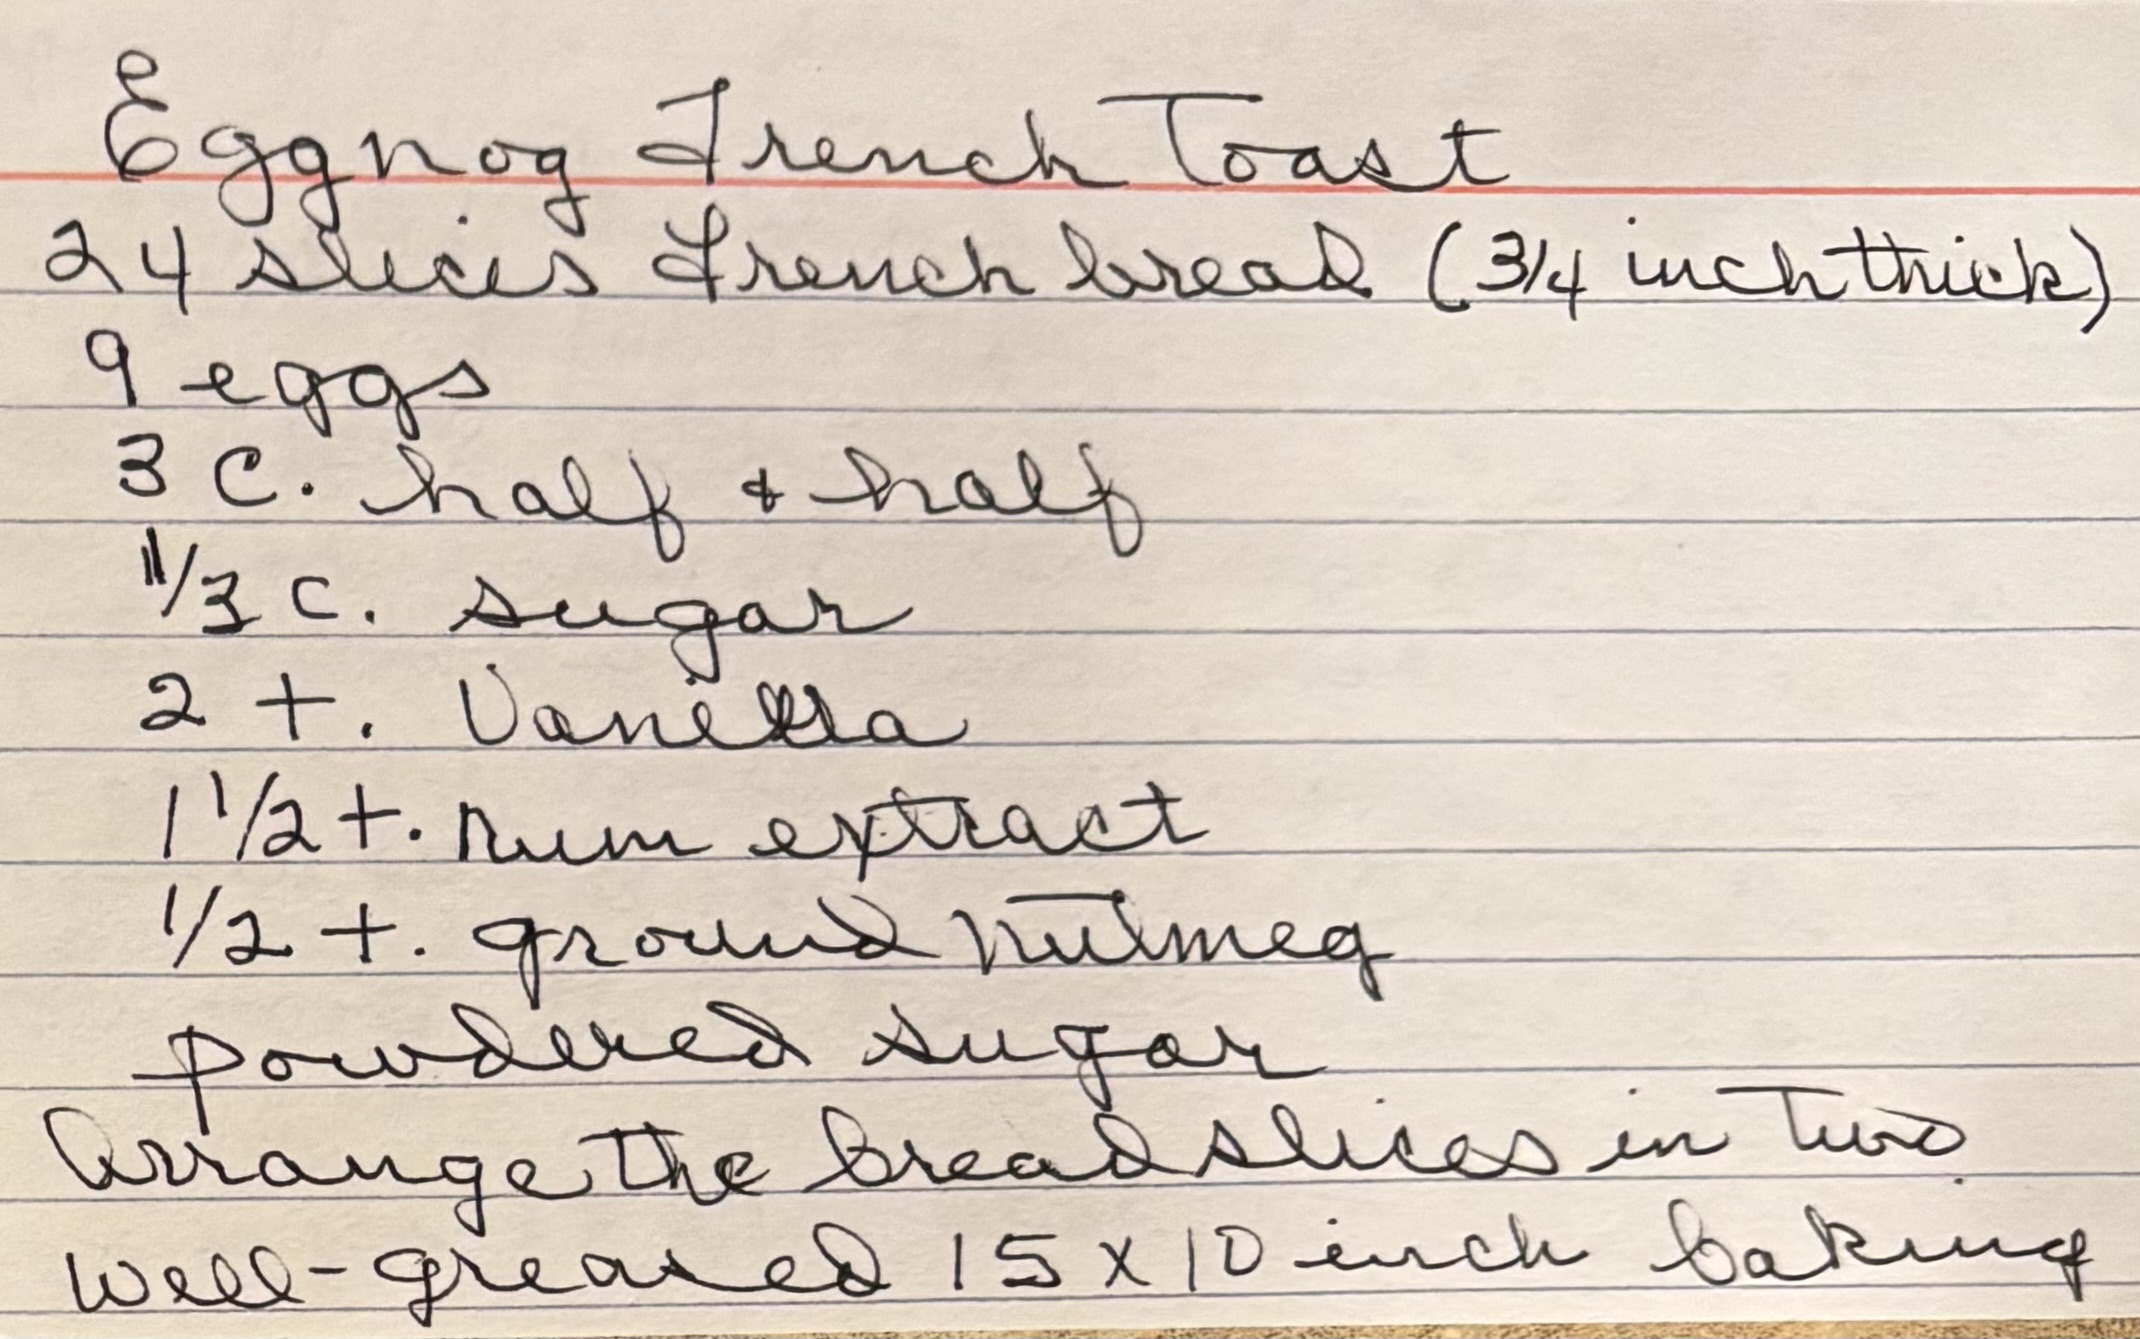 Eggnog French Toast
24 slices French bread (3/4 inch thick)
9 eggs
3 C. half & half
1/3 C. sugar
2 t. Vanilla
1 1/2 t. rum extract
1/2 t. ground nutmeg
powdered sugar
Arrange the bread slices in two
well-greased 15 x 10 inch baking